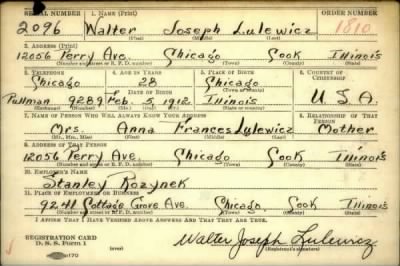 SERIAL NUMBER 1. NAME (Print) ORDER NUMBER
2096 Walter Joseph Lulewicz 1810
(First) (Middle) (Last)
2. ADDRESS (Print)
12056 Perry Ave. Chicago Cook Illinois
3. TELEPHONE 4. AGE IN YEARS 5. PLACE OF BIRTH 6. COUNTRY OF CITIZENSHIP
Chicago 28 Chicago
DATE OF BIRTH (Town or county)
Pullman 9289 Feb. 5, 1912 Illinois U.S.A.
(Exchange) (Number) (Mo.) (Day) (Yr.) (State or country)
7. NAME OF PERSON WHO WILL ALWAYS KNOW YOUR ADDRESS 8. RELATIONSHIP OF THAT PERSON
Mrs. Anna Frances Lulewicz Mother
(Mr., Mrs., Miss) (First) (Middle) (Last)
9. ADDRESS OF THAT PERSON
12056 Perry Ave. Chicago Cook Illinois
10. EMPLOYER'S NAME
Stanley Rozynek
11. PLACE OF EMPLOYMENT OR BUSINESS
9241 Cottage Grove Ave. Chicago, Cook Illinois
I AFFIRM THAT I HAVE VERIFIED ABOVE ANSWERS AND THAT THEY ARE TRUE.
REGISTRATION CARD
D. S. S. Form 1 Walter Joseph Lulewicz
(Registrant's signature)